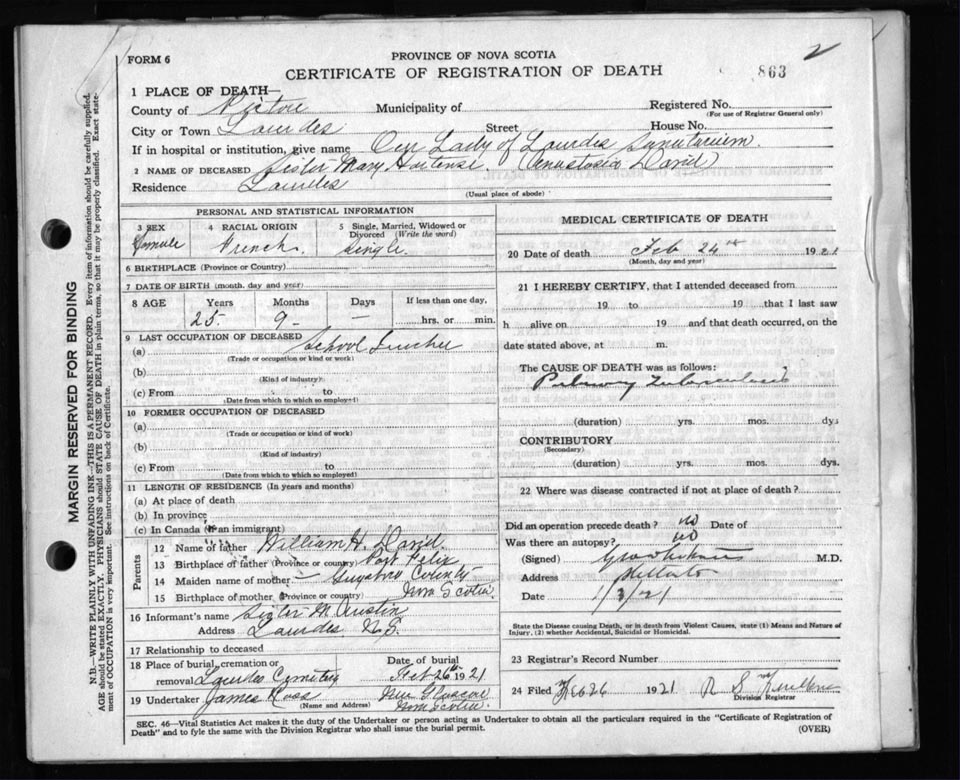 FORM 6
PROVINCE OF NOVA SCOTIA
CERTIFICATE OF REGISTRATION OF DEATH
863
2
1 PLACE OF DEATH—
County of Pictou Municipality of Registered No.
(For use of Registrar General only)
City or Town Lourdes Street House No.
If in hospital or institution, give name Our Lady of Lourdes Sanitarium.
2 NAME OF DECEASED Sister Mary Hortense. (Anastasia David)
Residence Lourdes
(Usual place of abode)
PERSONAL AND STATISTICAL INFORMATION
3 SEX 4 RACIAL ORIGIN 5 Single, Married, Widowed or Divorced (Write the word)
Female French. Single.
6 BIRTHPLACE (Province or Country)
7 DATE OF BIRTH (month, day and year)
8 AGE Years Months Days If less than one day
25 9 — hrs. or min.
9 LAST OCCUPATION OF DECEASED
(a) School Teacher
(Trade or occupation or kind of work)
(b)
(Kind of industry)
(c) From to
(Date from which to which so employed)
10 FORMER OCCUPATION OF DECEASED
(a)
(Trade or occupation or kind of work)
(b)
(Kind of industry)
(c) From to
(Date from which to which so employed)
11 LENGTH OF RESIDENCE (In years and months)
(a) At place of death
(b) In province
(c) In Canada (if an immigrant)
Parents
12 Name of father William H. David.
13 Birthplace of father (Province or country) Port Felix
14 Maiden name of mother —
15 Birthplace of mother (Province or country) Nova Scotia
16 Informant's name Sister M Austin
Address Lourdes N.S.
17 Relationship to deceased
18 Place of burial, cremation or removal Lourdes Cemetery Date of burial Feb 26th 1921
19 Undertaker James Ross New Glasgow
(Name and Address) Nova Scotia.
MEDICAL CERTIFICATE OF DEATH
20 Date of death Feb 24th 1921
(Month, day and year)
21 I HEREBY CERTIFY, that I attended deceased from
19 to 19 that I last saw
h alive on 19 and that death occurred, on the
date stated above, at m.
The CAUSE OF DEATH was as follows:
Pulmonary Tuberculosis
(duration) yrs. mos. dys
CONTRIBUTORY
(Secondary)
(duration) yrs. mos. dys.
22 Where was disease contracted if not at place of death?
Did an operation precede death? no Date of
Was there an autopsy? no
(Signed) M.D.
Address
Date 1/3/21
State the Disease causing Death, or in death from Violent Causes, state (1) Means and Nature of
Injury, (2) whether Accidental, Suicidal or Homicidal.
23 Registrar's Record Number
24 Filed Feb 26 1921 R S
Division Registrar
SEC. 46—Vital Statistics Act makes it the duty of the Undertaker or person acting as Undertaker to obtain all the particulars required in the "Certificate of Registration of
Death" and to fyle the same with the Division Registrar who shall issue the burial permit.
(OVER)
MARGIN RESERVED FOR BINDING
N.B.—WRITE PLAINLY WITH UNFADING INK—THIS IS A PERMANENT RECORD. Every item of information should be carefully supplied.
AGE should be stated EXACTLY. PHYSICIANS should STATE CAUSE OF DEATH in plain terms, so that it may be properly classified. Exact state-
ment of OCCUPATION is very important. See instructions on back of Certificate.